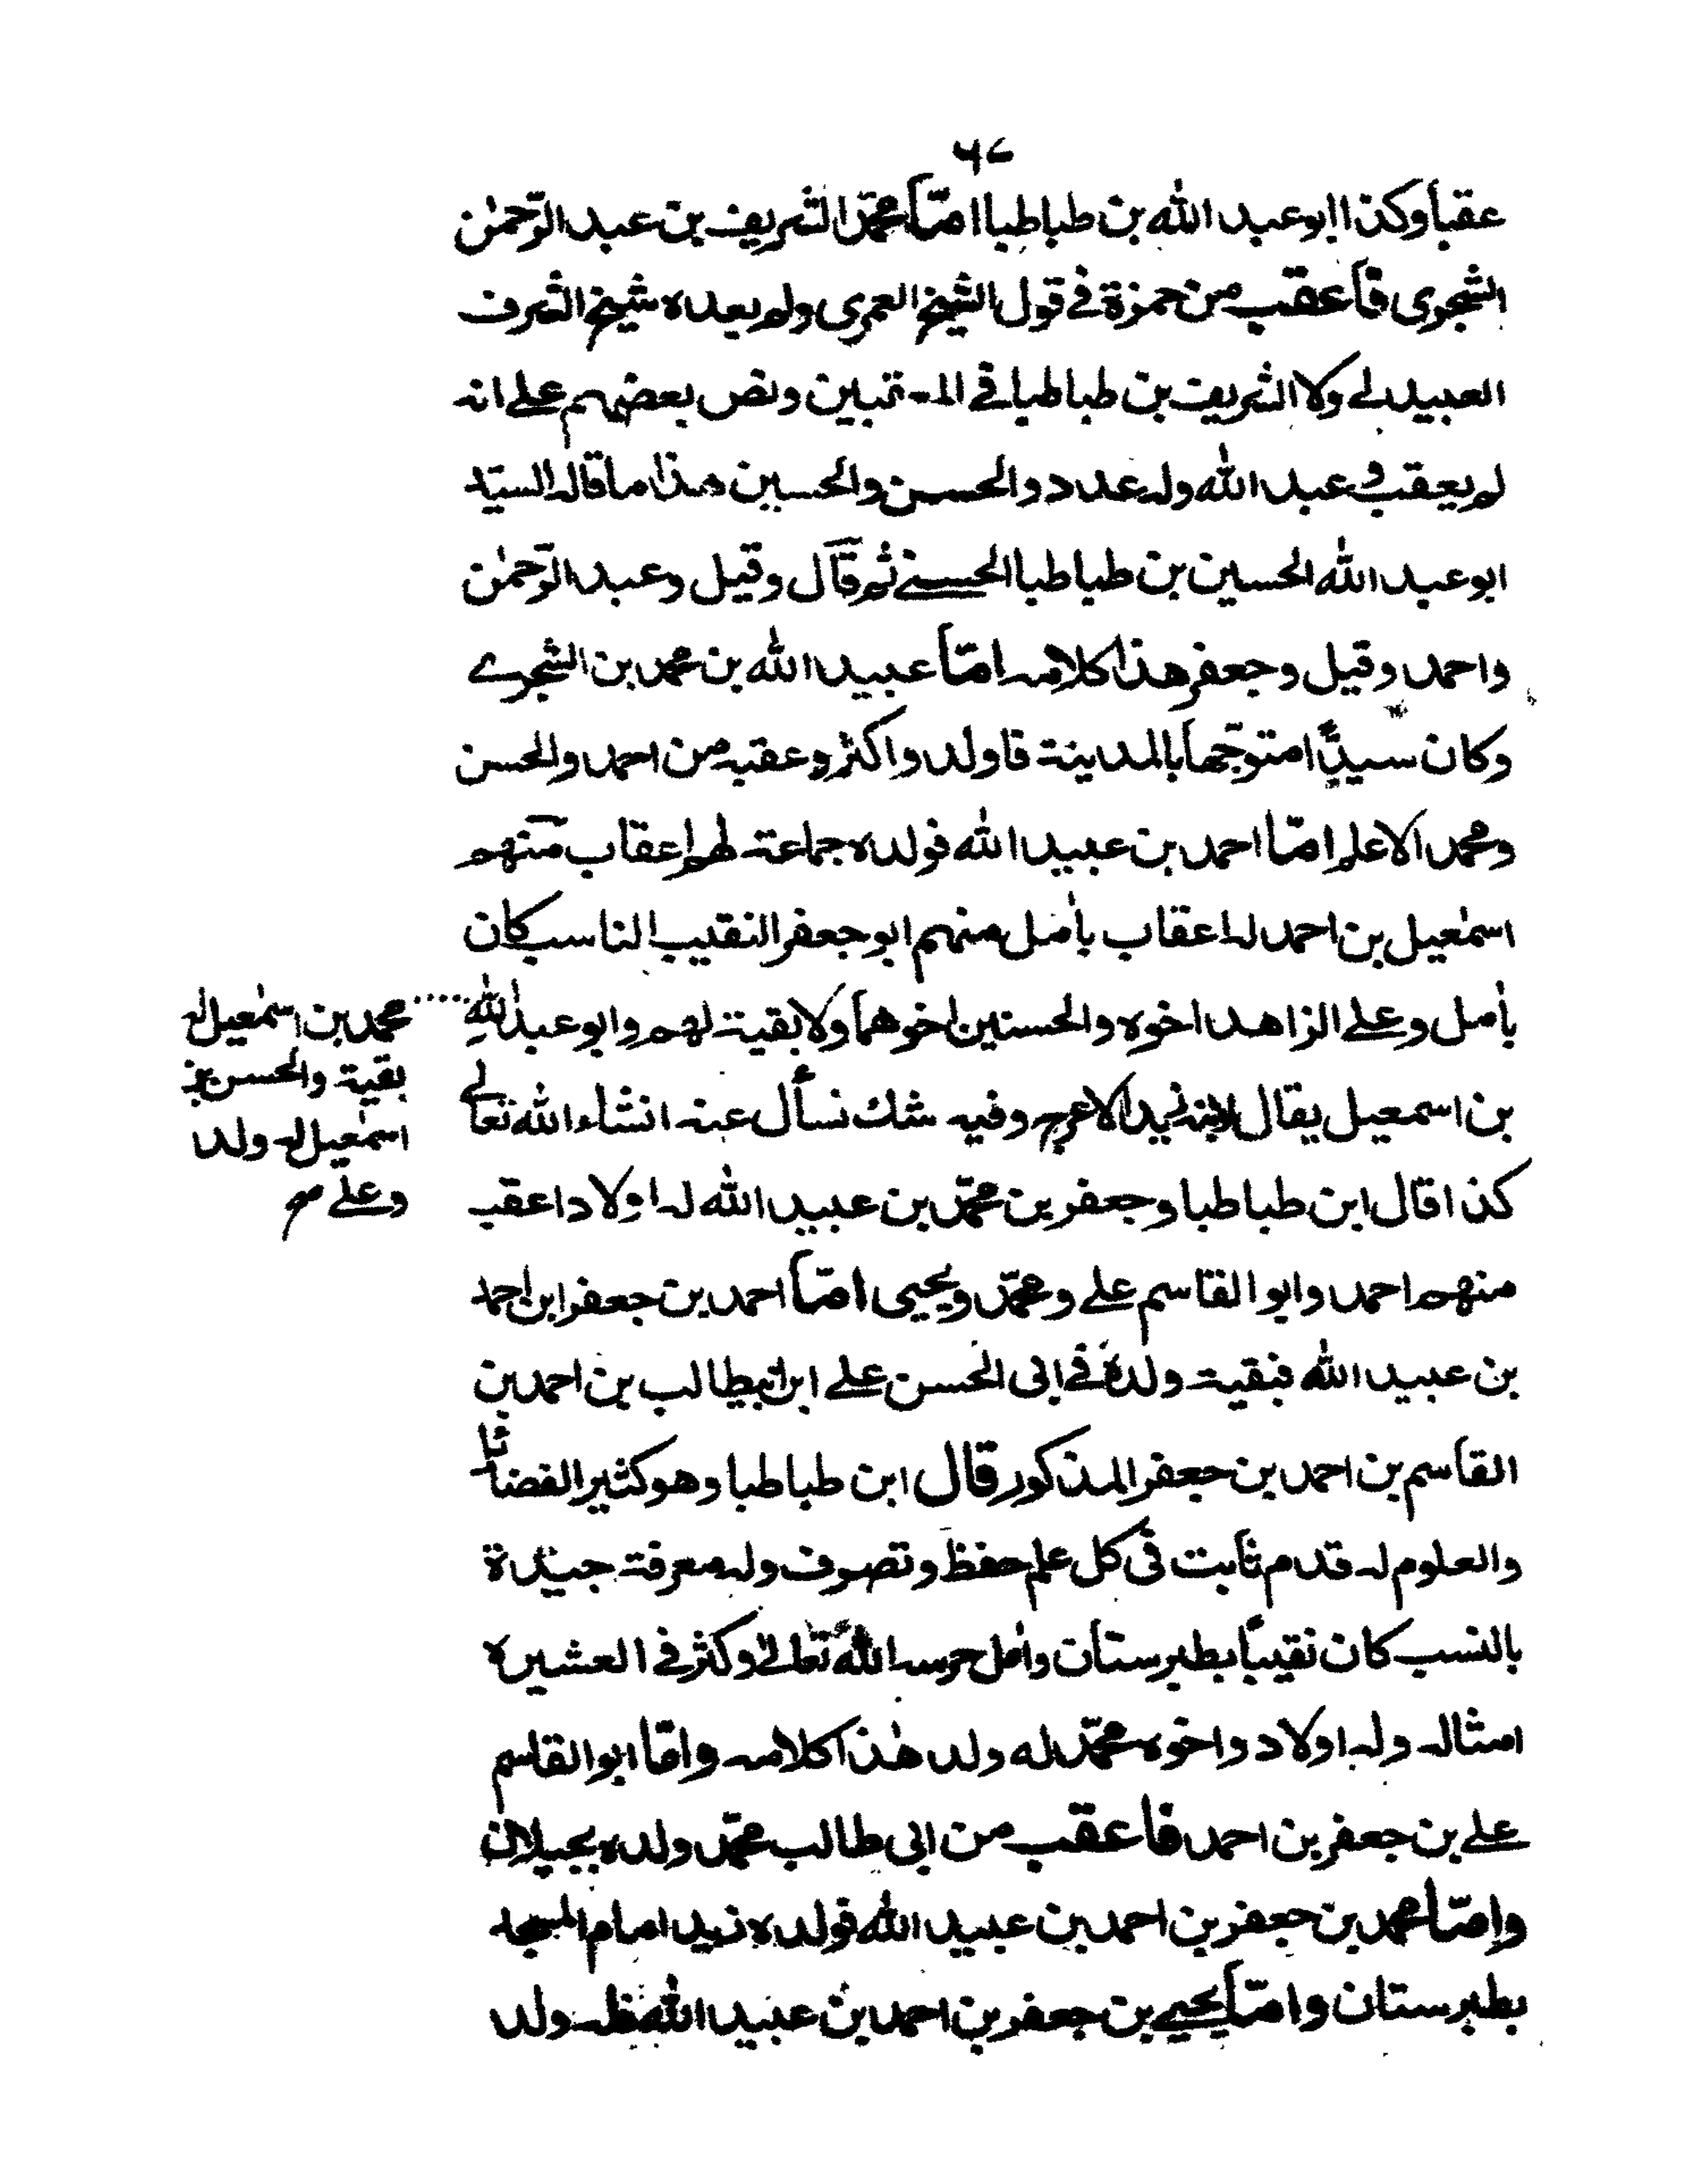 ٦٧
عقبا وكذا ابو عبد الله بن طباطبا امّا محمّد الشريف بن عبد الرّحمٰن
الشجرى فاعقب من حمزة في قول الشيخ العمرى ولم يعده شيخ الشرف
العبيدلى ولا الشريف بن طباطبا في ونص بعضهم على انه
لم يعقب و عبد الله وله عدد والحسن والحسين هذا ما قاله السيّد
ابو عبد الله الحسين بن طباطبا الحسنى ثم قال وقيل وعبد الرّحمٰن
واحمد وقيل وجعفر هذا كلامه امّا عبيد الله بن محمد بن الشجرے
وكان سيدًّا متوجّها بالمدينة فاولد واكثر وعقبه من احمد والحسن
ومحمد الاعلم امّا احمد بن عبيد الله فولده جماعة لهم اعقاب منهم
اسمٰعيل بن احمد له اعقاب بأمل منهم ابو جعفر النقيب الناسب كان
بأمل وعلى الزاهد اخوه والحسنين اخوهما ولا بقية لهم وابو عبد الله
محمد بن اسمٰعيل له
بقية والحسن بن
اسمٰعيل له ولد
وعلى صح
بن اسمعيل يقال لابنه زيد الاعرج وفيه شك نسأل عنه انشاء الله تعالى
كذا قال ابن طباطبا وجعفر بن محمّد بن عبيد الله له اولاد اعقب
منهم احمد وابو القاسم على ومحمّد ويحيى امّا احمد بن جعفر ابن احمد
بن عبيد الله فبقية ولده في ابى الحسن على ابن ابيطالب بن احمد بن
القاسم بن احمد بن جعفر المذكور قال ابن طباطبا وهو كثير الفضائل
والعلوم له قدم ثابت فى كل علم حفظ وتصرف وله معرفة جيّدة
بالنسب كان نقيبًا بطبرستان وأمل حرسه الله تعالى وكثر في العشيرة
امثاله وله اولاد واخوه محمّد له ولد هٰذا كلامه وامّا ابو القاسم
على بن جعفر بن احمد فاعقب من ابى طالب محمّد ولده بجيلان
وامّا محمد بن جعفر بن احمد بن عبيد الله فولده زيد امام المسجد
بطبرستان وامّا يحيى بن جعفر بن احمد بن عبيد الله ولد